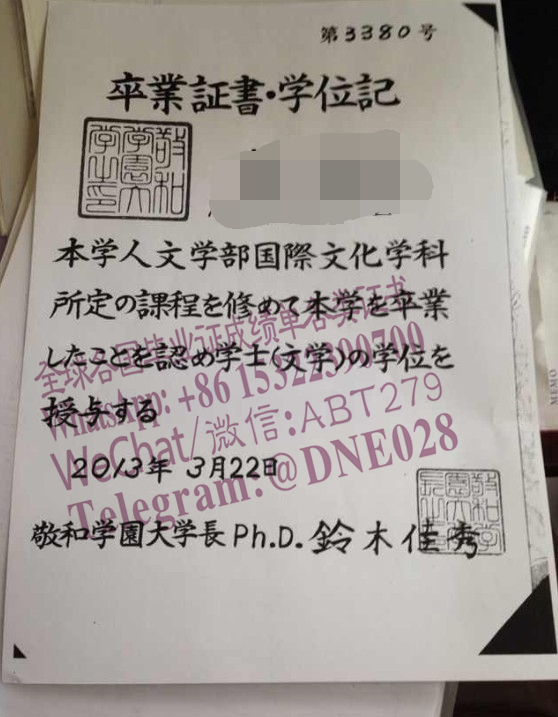 第3380号
卒業証書・学位記
敬和
学園大
学之印
本学人文学部国際文化学科
所定の課程を修めて本学を卒業
したことを認め学士(文学)の学位を
授与する
2013年 3月22日
敬和学園大学長 Ph.D. 鈴木佳秀
全球各国毕业证成绩单各类证书
WhatsApp: +86 15322300700
WeChat/微信:ABT279
Telegram:@DNE028